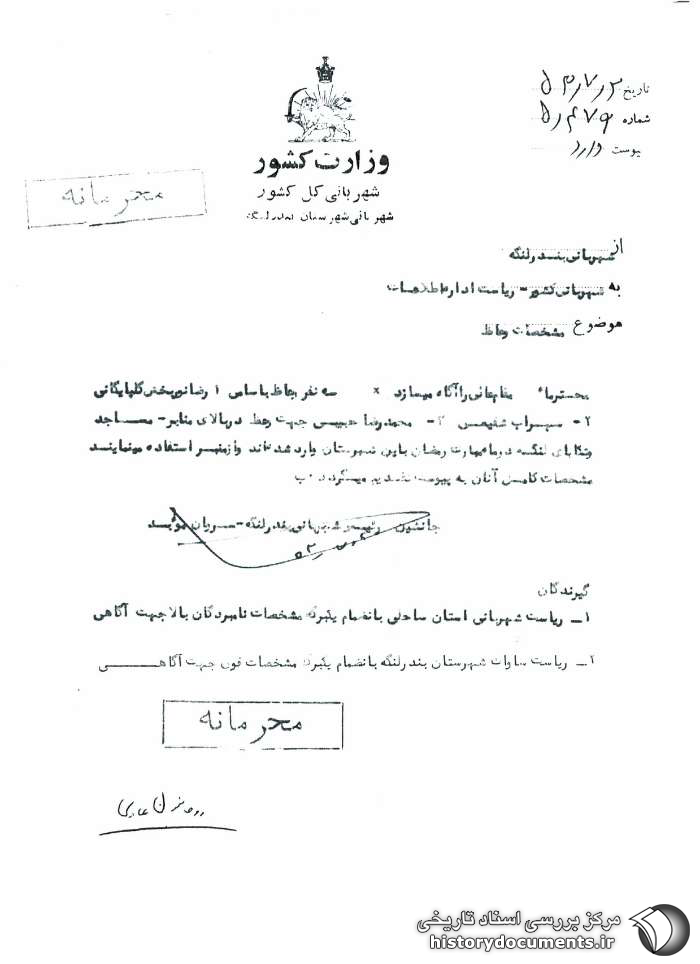 تاریخ ۵۳٫۷٫۳
شماره ۵٫۴۷۹
پیوست دارد
وزارت کشور
شهربانی کل کشور
شهربانی شهرستان بندرلنگه
محرمانه
از شهربانی بندرلنگه
به شهربانی کشور - ریاست اداره اطلاعات
موضوع مشخصات وعاظ
محترما" مقام عالی را آگاه میسازد × سه نفر وعاظ باسامی ۱ رضا نوربخش گلپایگانی
۲- سهراب شفیعی ۳- محمدرضا حبیبی جهت وعظ دربالای منابر - مساجد
وتکایای لنگه درماه مبارک رمضان باین شهرستان وارد شده اند وازمنبر استفاده مینمایند
مشخصات کامل آنان به پیوست تقدیم میگردد ب
جانشین رئیس شهربانی بندرلنگه - سروان مؤید
گیرندگان
۱_ ریاست شهربانی استان ساحلی بانضمام یکبرگ مشخصات نامبردگان بالا جهت آگاهی
۲_ ریاست ساواک شهرستان بندرلنگه بانضمام یکبرگ مشخصات فوق جهت آگاهی
محرمانه
مرکز بررسی اسناد تاریخی
historydocuments.ir